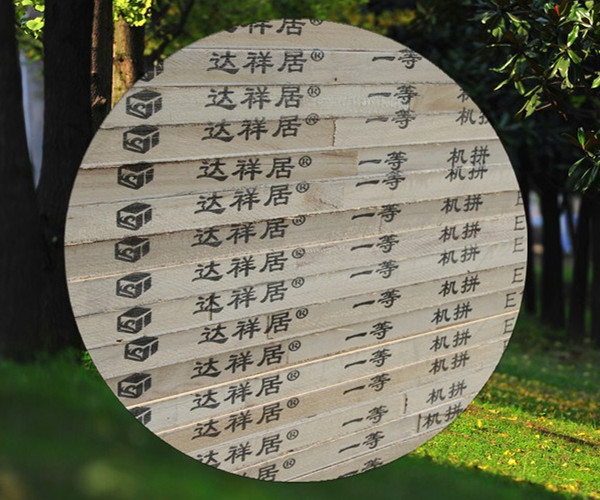 达祥居®
达祥居® 一等
达祥居® 一等 机
达祥居® 一等 机拼
达祥居® 一等 机拼
达祥居® 一等 机拼
达祥居® 一等 机拼 E
达祥居® 一等 机拼 E
达祥居® 一等 机拼 E
达祥居® 一等 机拼 E
达祥居® 一等 机拼 E
达祥居® 一等 机拼 E
达祥居® 一等 机拼
达祥居® 一等 机拼
达祥居® 一等 机拼
一等